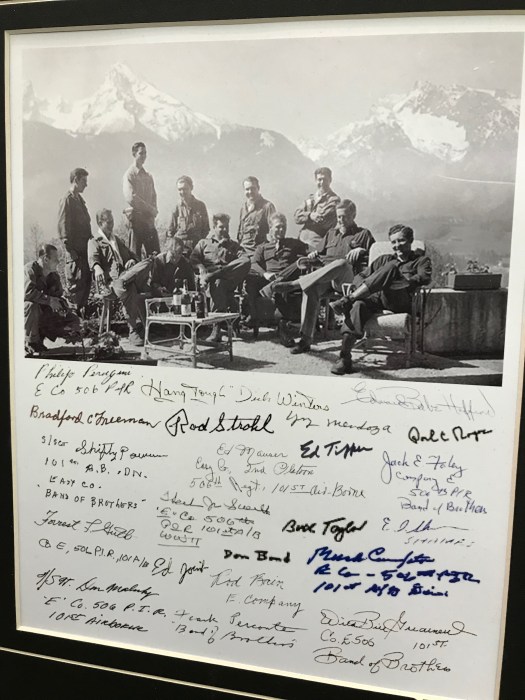 Philip Perugini
E Co 506 PIR
"Hang Tough" Dick Winters
Edward Babe Heffron
Bradford C Freeman
Rod Strohl
Yoy Mendoza
Earl C
S/Sgt Shifty Powers
101st A.B. DIV.
EASY CO.
BAND OF BROTHERS
Ed Mauser
Easy Co. 2nd Platoon
506th Regt. 101ST Air-Borne
Ed Tipper
Jack E Foley
Company E
506 PIR
Band of Brothers
Forrest L Guth
CO E, 506 P.I.R, 101 A/B
"E" Co. 506th
P.I.R 101st A/B
WWII
Buck Taylor
E.D. Shames
SHAMES
Ed Joint
Don Bond
Rod Bain
E. Company
Buck Compton
E Co - 506th PIR
101st A/B Div
1/SGT Don Malarkey
"E" Co. 506 P.I.R.
101st Airborne
Frank Perconte
"Band of Brothers"
Wild Bill Guarnere
Co. E 506 101ST.
Band of Brothers